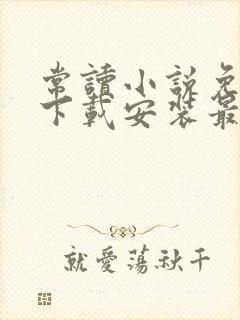 常讀小說免
下載安裝最
就愛蕩秋千